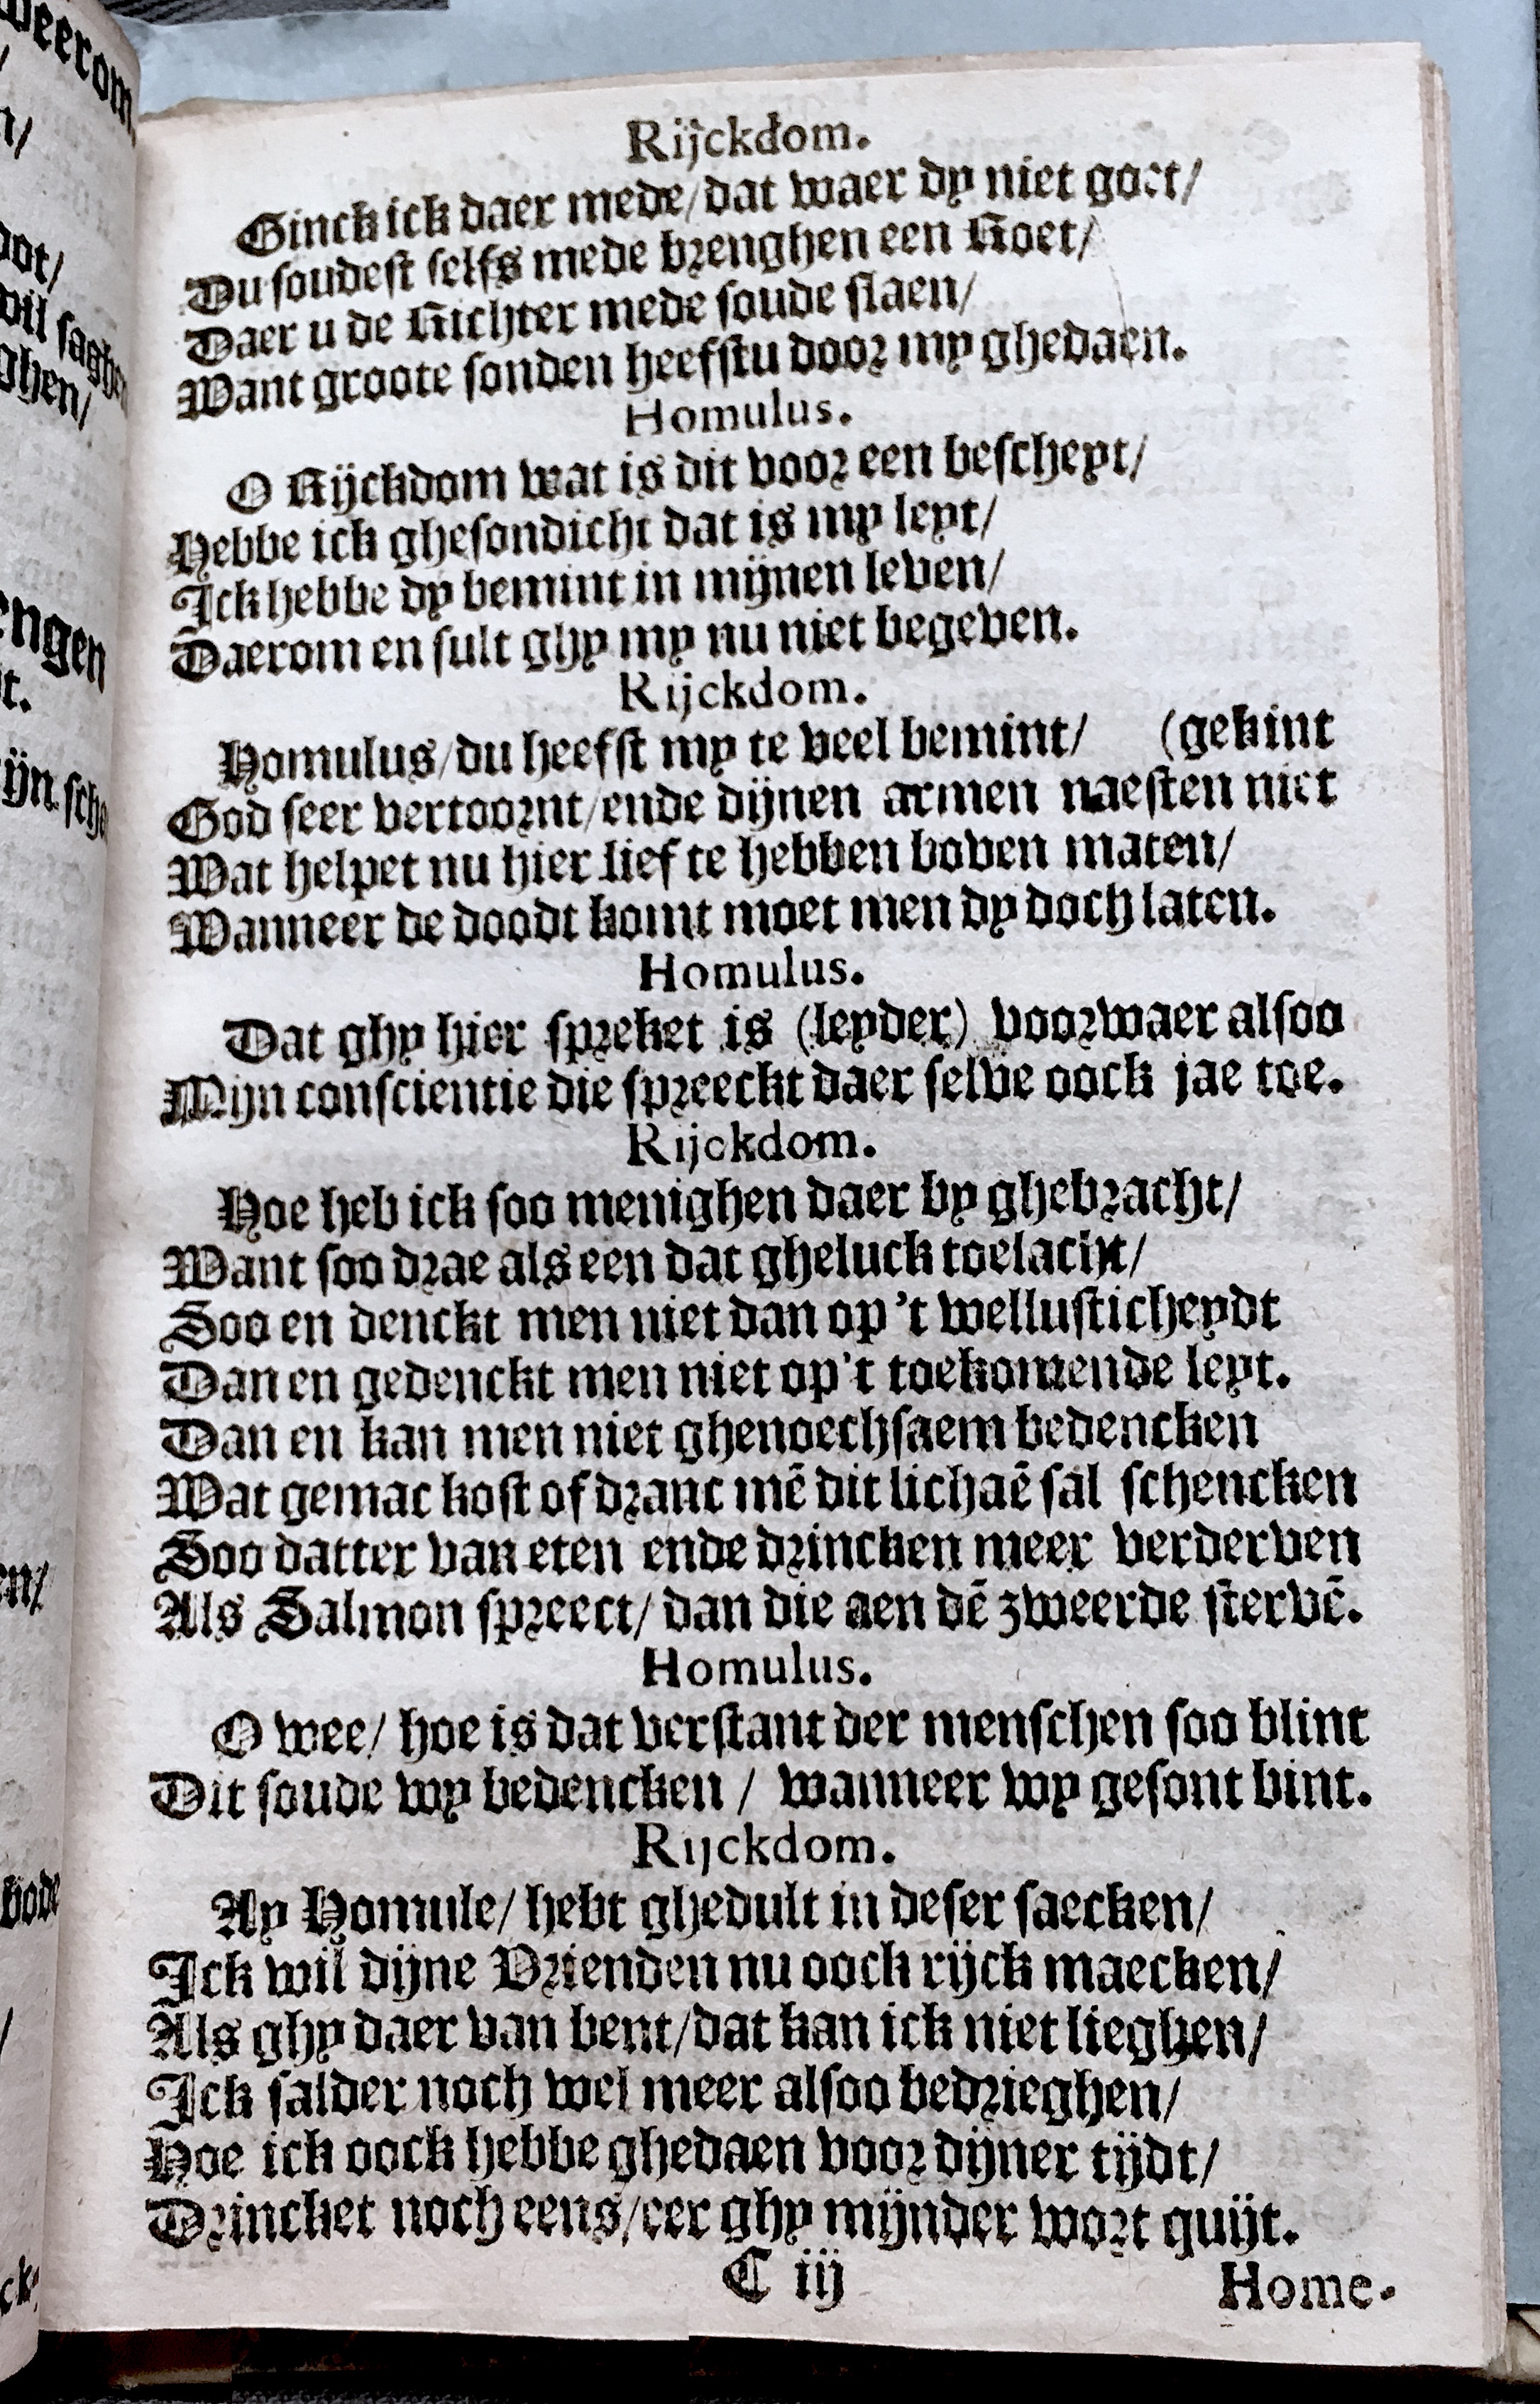 Rijckdom.
Ginck ick daer mede/dat waer dy niet goet/
Du soudest selfs mede brenghen een Roet/
Daer u de Richter mede soude slaen/
Want groote sonden heefstu door my ghedaen.
Homulus.
O Rijckdom wat is dit voor een bescheyt/
Hebbe ick ghesondicht dat is my leyt/
Ick hebbe dy bemint in mijnen leven/
Daerom en sult ghy my nu niet begeven.
Rijckdom.
Homulus/du heefst my te veel bemint/ (gekint
God seer vertoornt/ende dijnen armen naesten niet
Wat helpet nu hier lief te hebben boven maten/
Wanneer de doodt komt moet men dy doch laten.
Homulus.
Dat ghy hier spreket is (leyder) voorwaer alsoo
Mijn conscientie die spreeckt daer selve oock jae toe.
Rijckdom.
Hoe heb ick soo menighen daer by ghebracht/
Want soo drae als een dat gheluck toelacht/
Soo en denckt men niet dan op't wellusticheydt
Dan en gedenckt men niet op't toekomende leyt.
Dan en kan men niet ghenoechsaem bedencken
Wat gemac kost of dranc mẽ dit lichaẽ sal schencken
Soo datter van eten ende drincken meer verderven
Als Salmon spreect/ dan die aen dẽ zweerde stervẽ.
Homulus.
O wee/ hoe is dat verstant der menschen soo blint
Dit soude wy bedencken / wanneer wy gesont bint.
Rijckdom.
Ay Homule/ hebt ghedult in deser saecken/
Ick wil dijne Vrienden nu oock rijck maecken/
Als ghy daer van bent/dat kan ick niet lieghen/
Ick salder noch wel meer alsoo bedrieghen/
Hoe ick oock hebbe ghedaen voor dijner tijdt/
Drincket noch eens/eer ghy mijnder wort quijt.
C iij
Home.